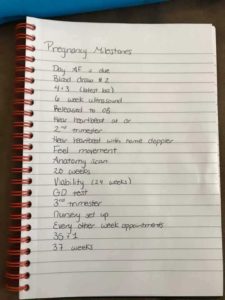 Pregnancy Milestones
Day AF is due
Blood draw #2
4+3 (latest bfp)
6 week ultrasound
Released to OB
Hear heartbeat at dr
2nd trimester
Hear heartbeat with home doppler
Feel movement
Anatomy scan
20 weeks
Viability (24 weeks)
GD test
3rd trimester
Nursery set up
Every other week appointments
35
37 weeks